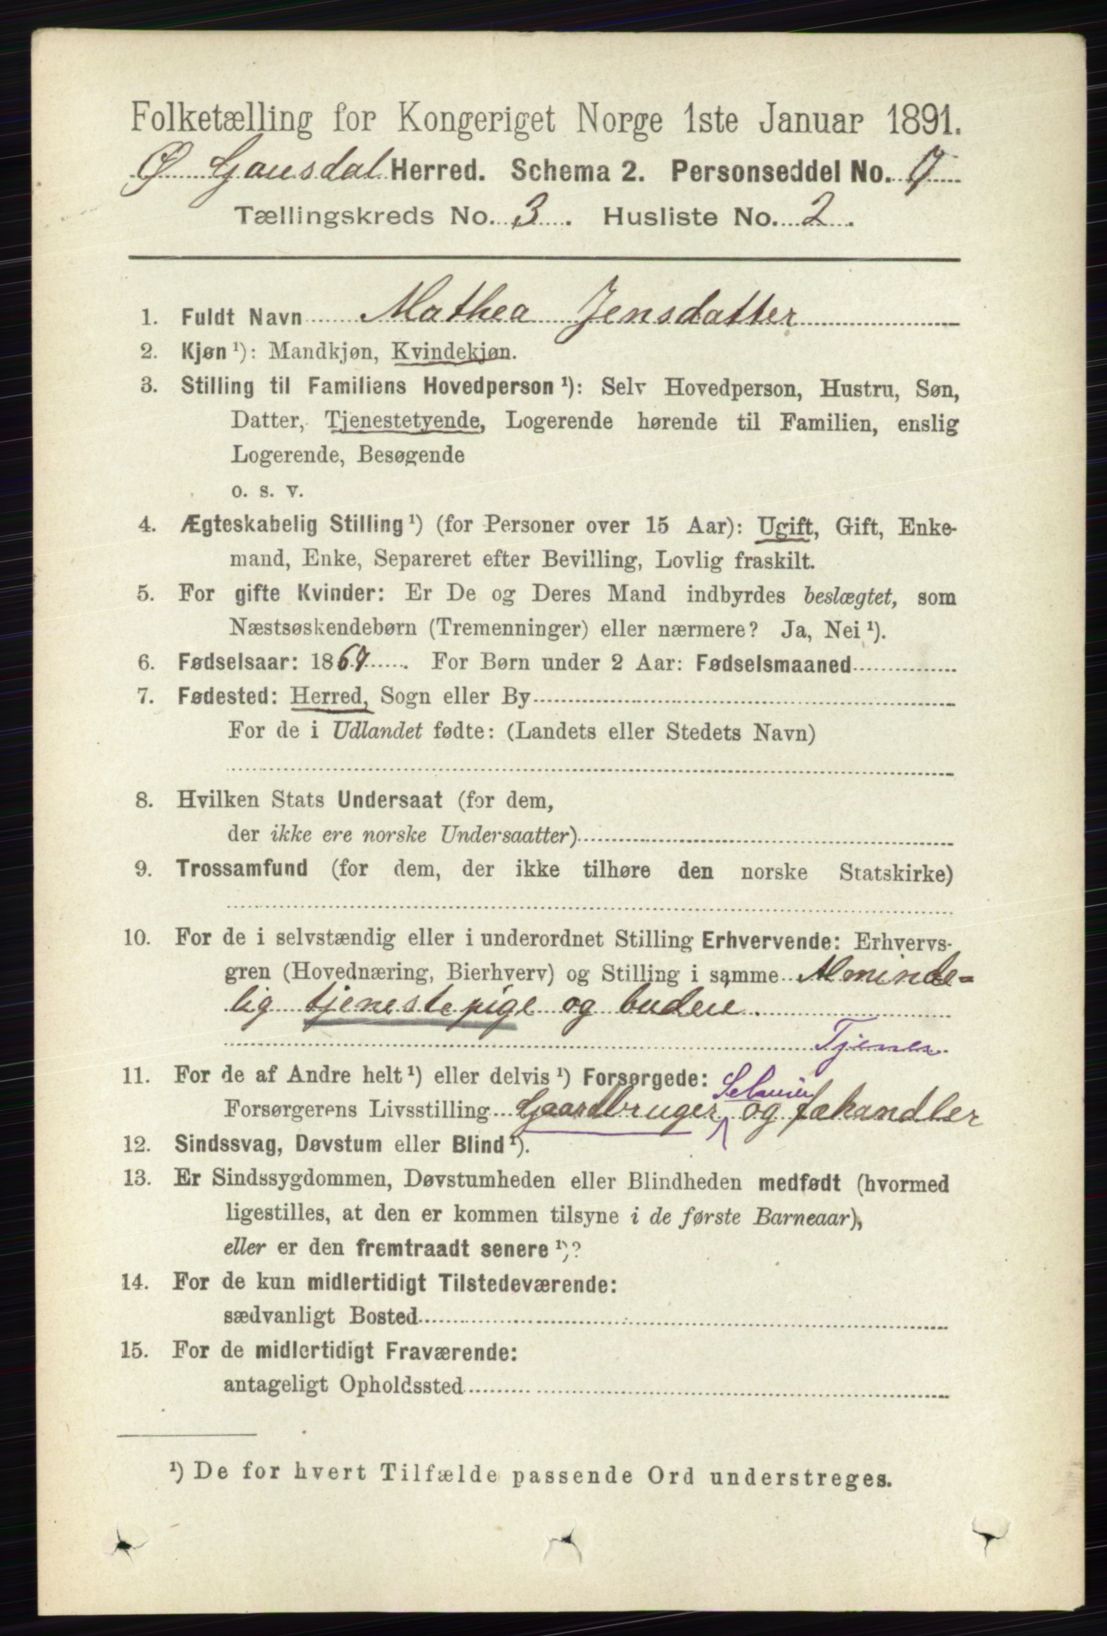 Folketælling for Kongeriget Norge 1ste Januar 1891.
Ø Gausdal Herred. Schema 2. Personseddel No. 7
Tællingskreds No. 3. Husliste No. 2.
1. Fuldt Navn Mathea Jensdatter
2. Kjøn ¹): Mandkjøn, Kvindekjøn.
3. Stilling til Familiens Hovedperson ¹): Selv Hovedperson, Hustru, Søn,
Datter, Tjenestetyende, Logerende hørende til Familien, enslig
Logerende, Besøgende
o. s. v.
4. Ægteskabelig Stilling ¹) (for Personer over 15 Aar): Ugift, Gift, Enke-
mand, Enke, Separeret efter Bevilling, Lovlig fraskilt.
5. For gifte Kvinder: Er De og Deres Mand indbyrdes beslægtet, som
Næstsøskendebørn (Tremenninger) eller nærmere? Ja, Nei ¹).
6. Fødselsaar: 1869. For Børn under 2 Aar: Fødselsmaaned
7. Fødested: Herred, Sogn eller By
For de i Udlandet fødte: (Landets eller Stedets Navn)
8. Hvilken Stats Undersaat (for dem,
der ikke ere norske Undersaatter)
9. Trossamfund (for dem, der ikke tilhøre den norske Statskirke)
10. For de i selvstændig eller i underordnet Stilling Erhvervende: Erhvervs-
gren (Hovednæring, Bierhverv) og Stilling i samme Alminde=
lig tjenestepige og budeie.
Tjener
11. For de af Andre helt ¹) eller delvis ¹) Forsørgede: Selveier
Forsørgerens Livsstilling Gaardbruger og fæhandler
12. Sindssvag, Døvstum eller Blind ¹).
13. Er Sindssygdommen, Døvstumheden eller Blindheden medfødt (hvormed
ligestilles, at den er kommen tilsyne i de første Barneaar),
eller er den fremtraadt senere ¹)?
14. For de kun midlertidigt Tilstedeværende:
sædvanligt Bosted
15. For de midlertidigt Fraværende:
antageligt Opholdssted
¹) De for hvert Tilfælde passende Ord understreges.